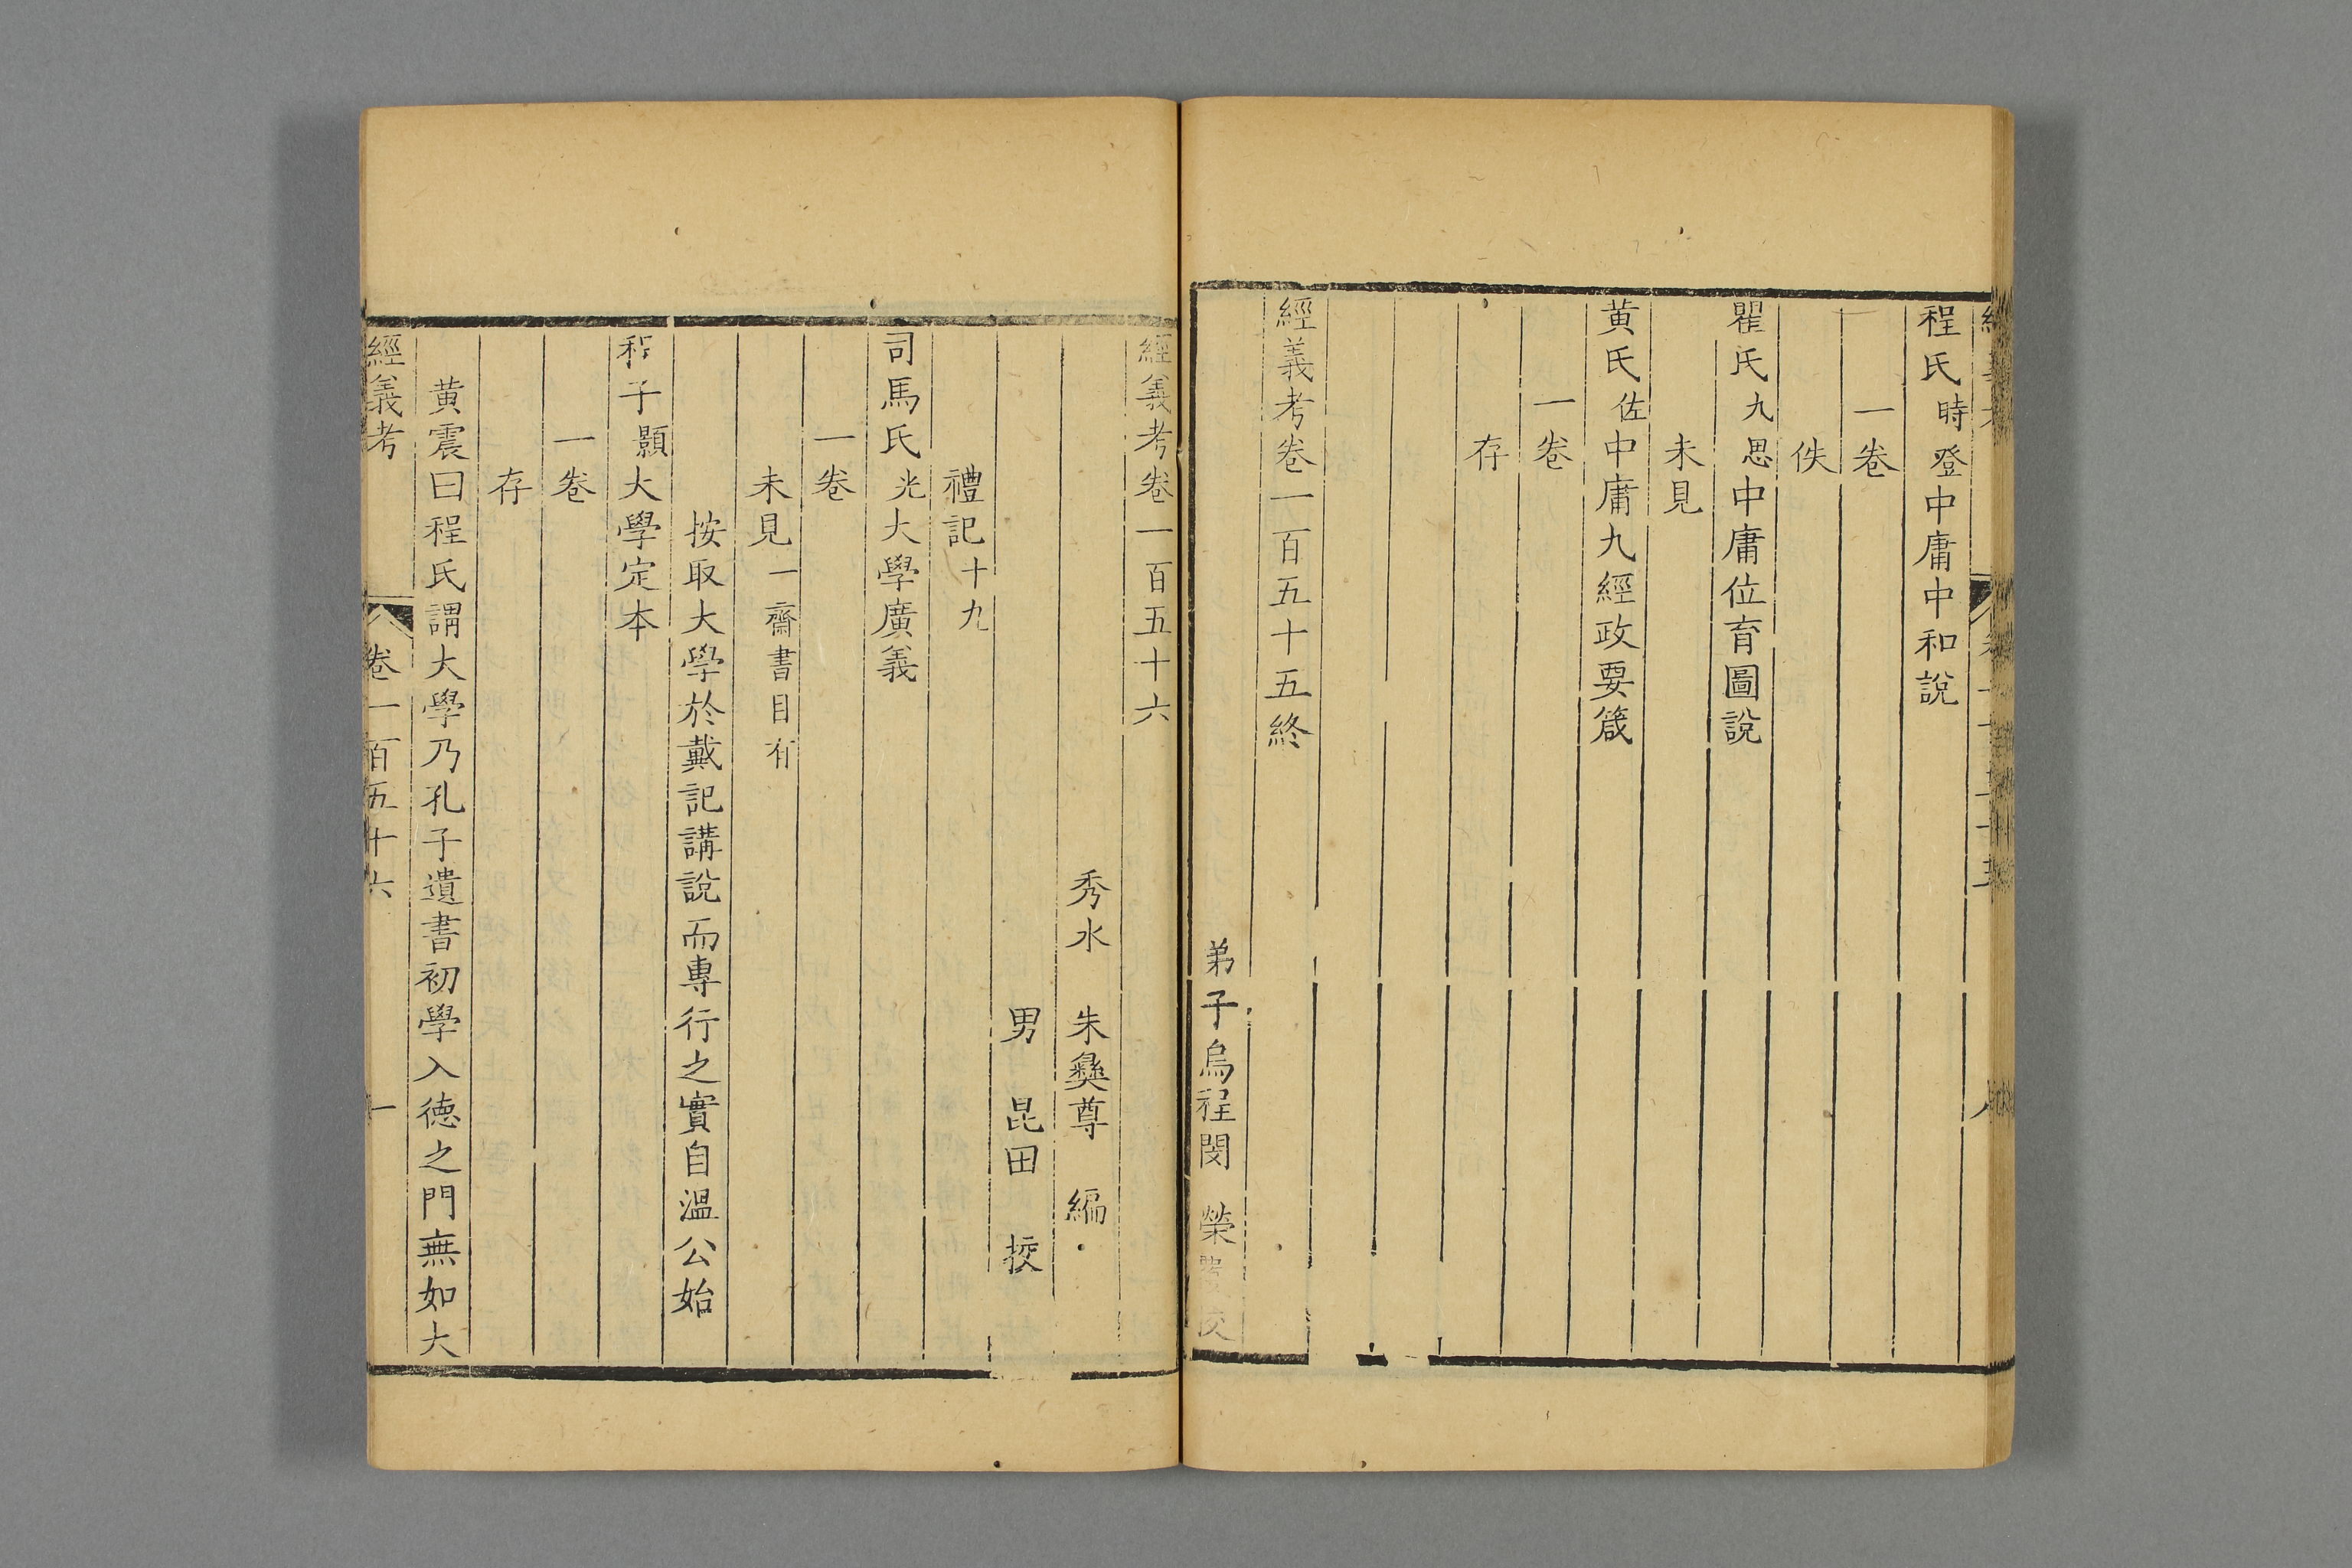 程氏時登中庸中和說
一卷
佚
瞿氏九思中庸位育圖說
未見
黄氏佐中庸九經政要箴
一卷
存
經義考卷一百五十五終
弟子烏程閔榮
經義考卷一百五十六
秀水朱彝尊編
男昆田挍
禮記十九
司馬氏光大學廣義
一卷
未見一齋書目有
按取大學於戴記講說而專行之實自溫公始
程子顥大學定本
一卷
存
黄震曰程氏謂大學乃孔子遺書初學入德之門無如大
經義考
卷一百五十六
一